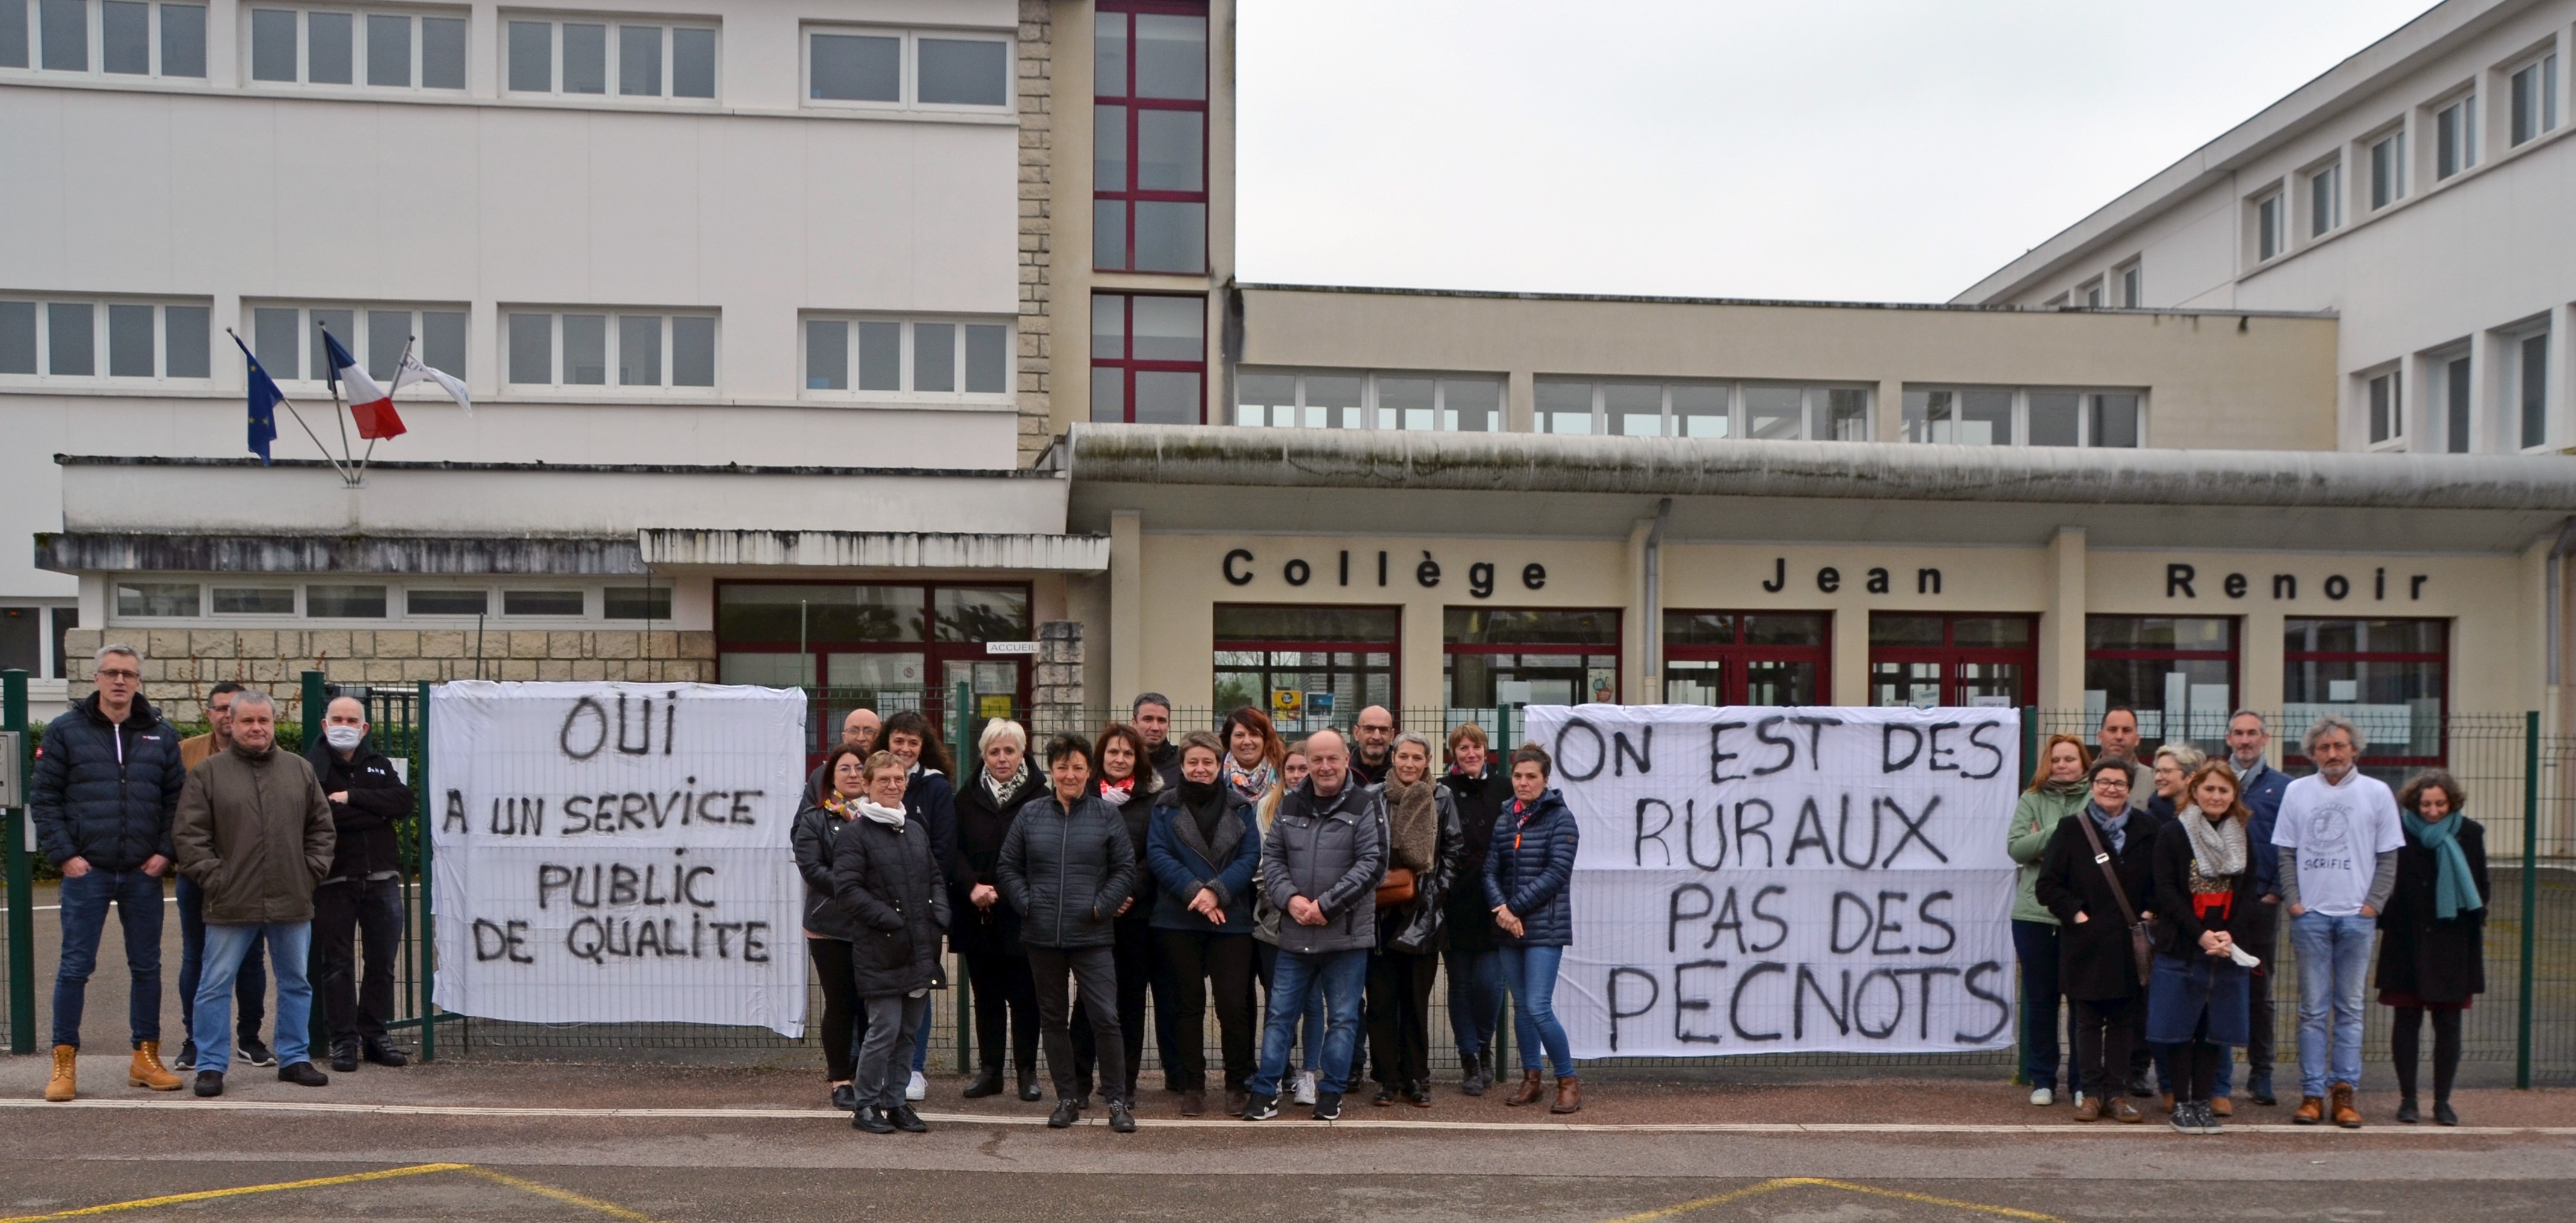 Collège Jean Renoir
ACCUEIL
OUi
A UN SERViCE
PUBLiC
DE QUALITE
ON EST DES
RURAUX
PAS DES
PECNOTS
SACRIFIÉ